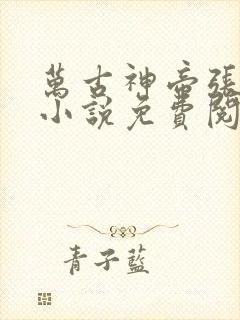 萬古神帝張
小說免費閱
青子藍